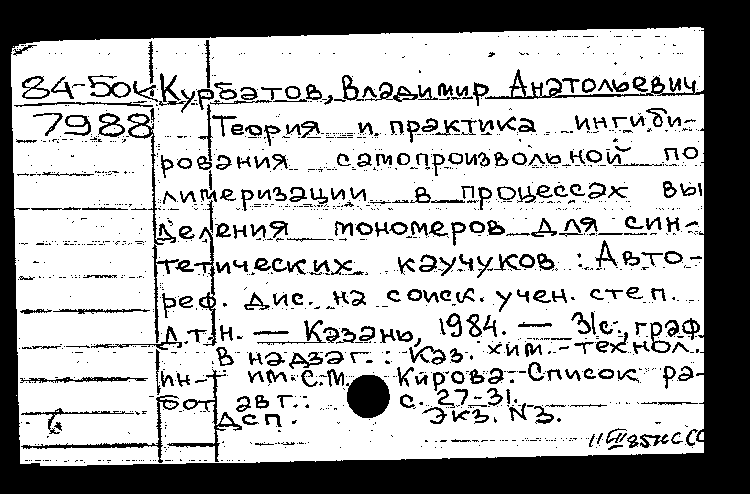 84-504 Курбатов, Владимир Анатольевич
7988 Теория и практика ингиби-
рования самопроизвольной по
лимеризации в процессах вы
деления мономеров для син-
тетических каучуков : Авто-
реф. дис. на соиск. учен. степ.
д.т.н. — Казань, 1984. — 31с., граф
В надзаг.: Каз. хим.-технол.
ин-т им. С.М. Кирова. Список ра-
бот авт.: с. 27-31.
6 Дсп. Экз. N3.